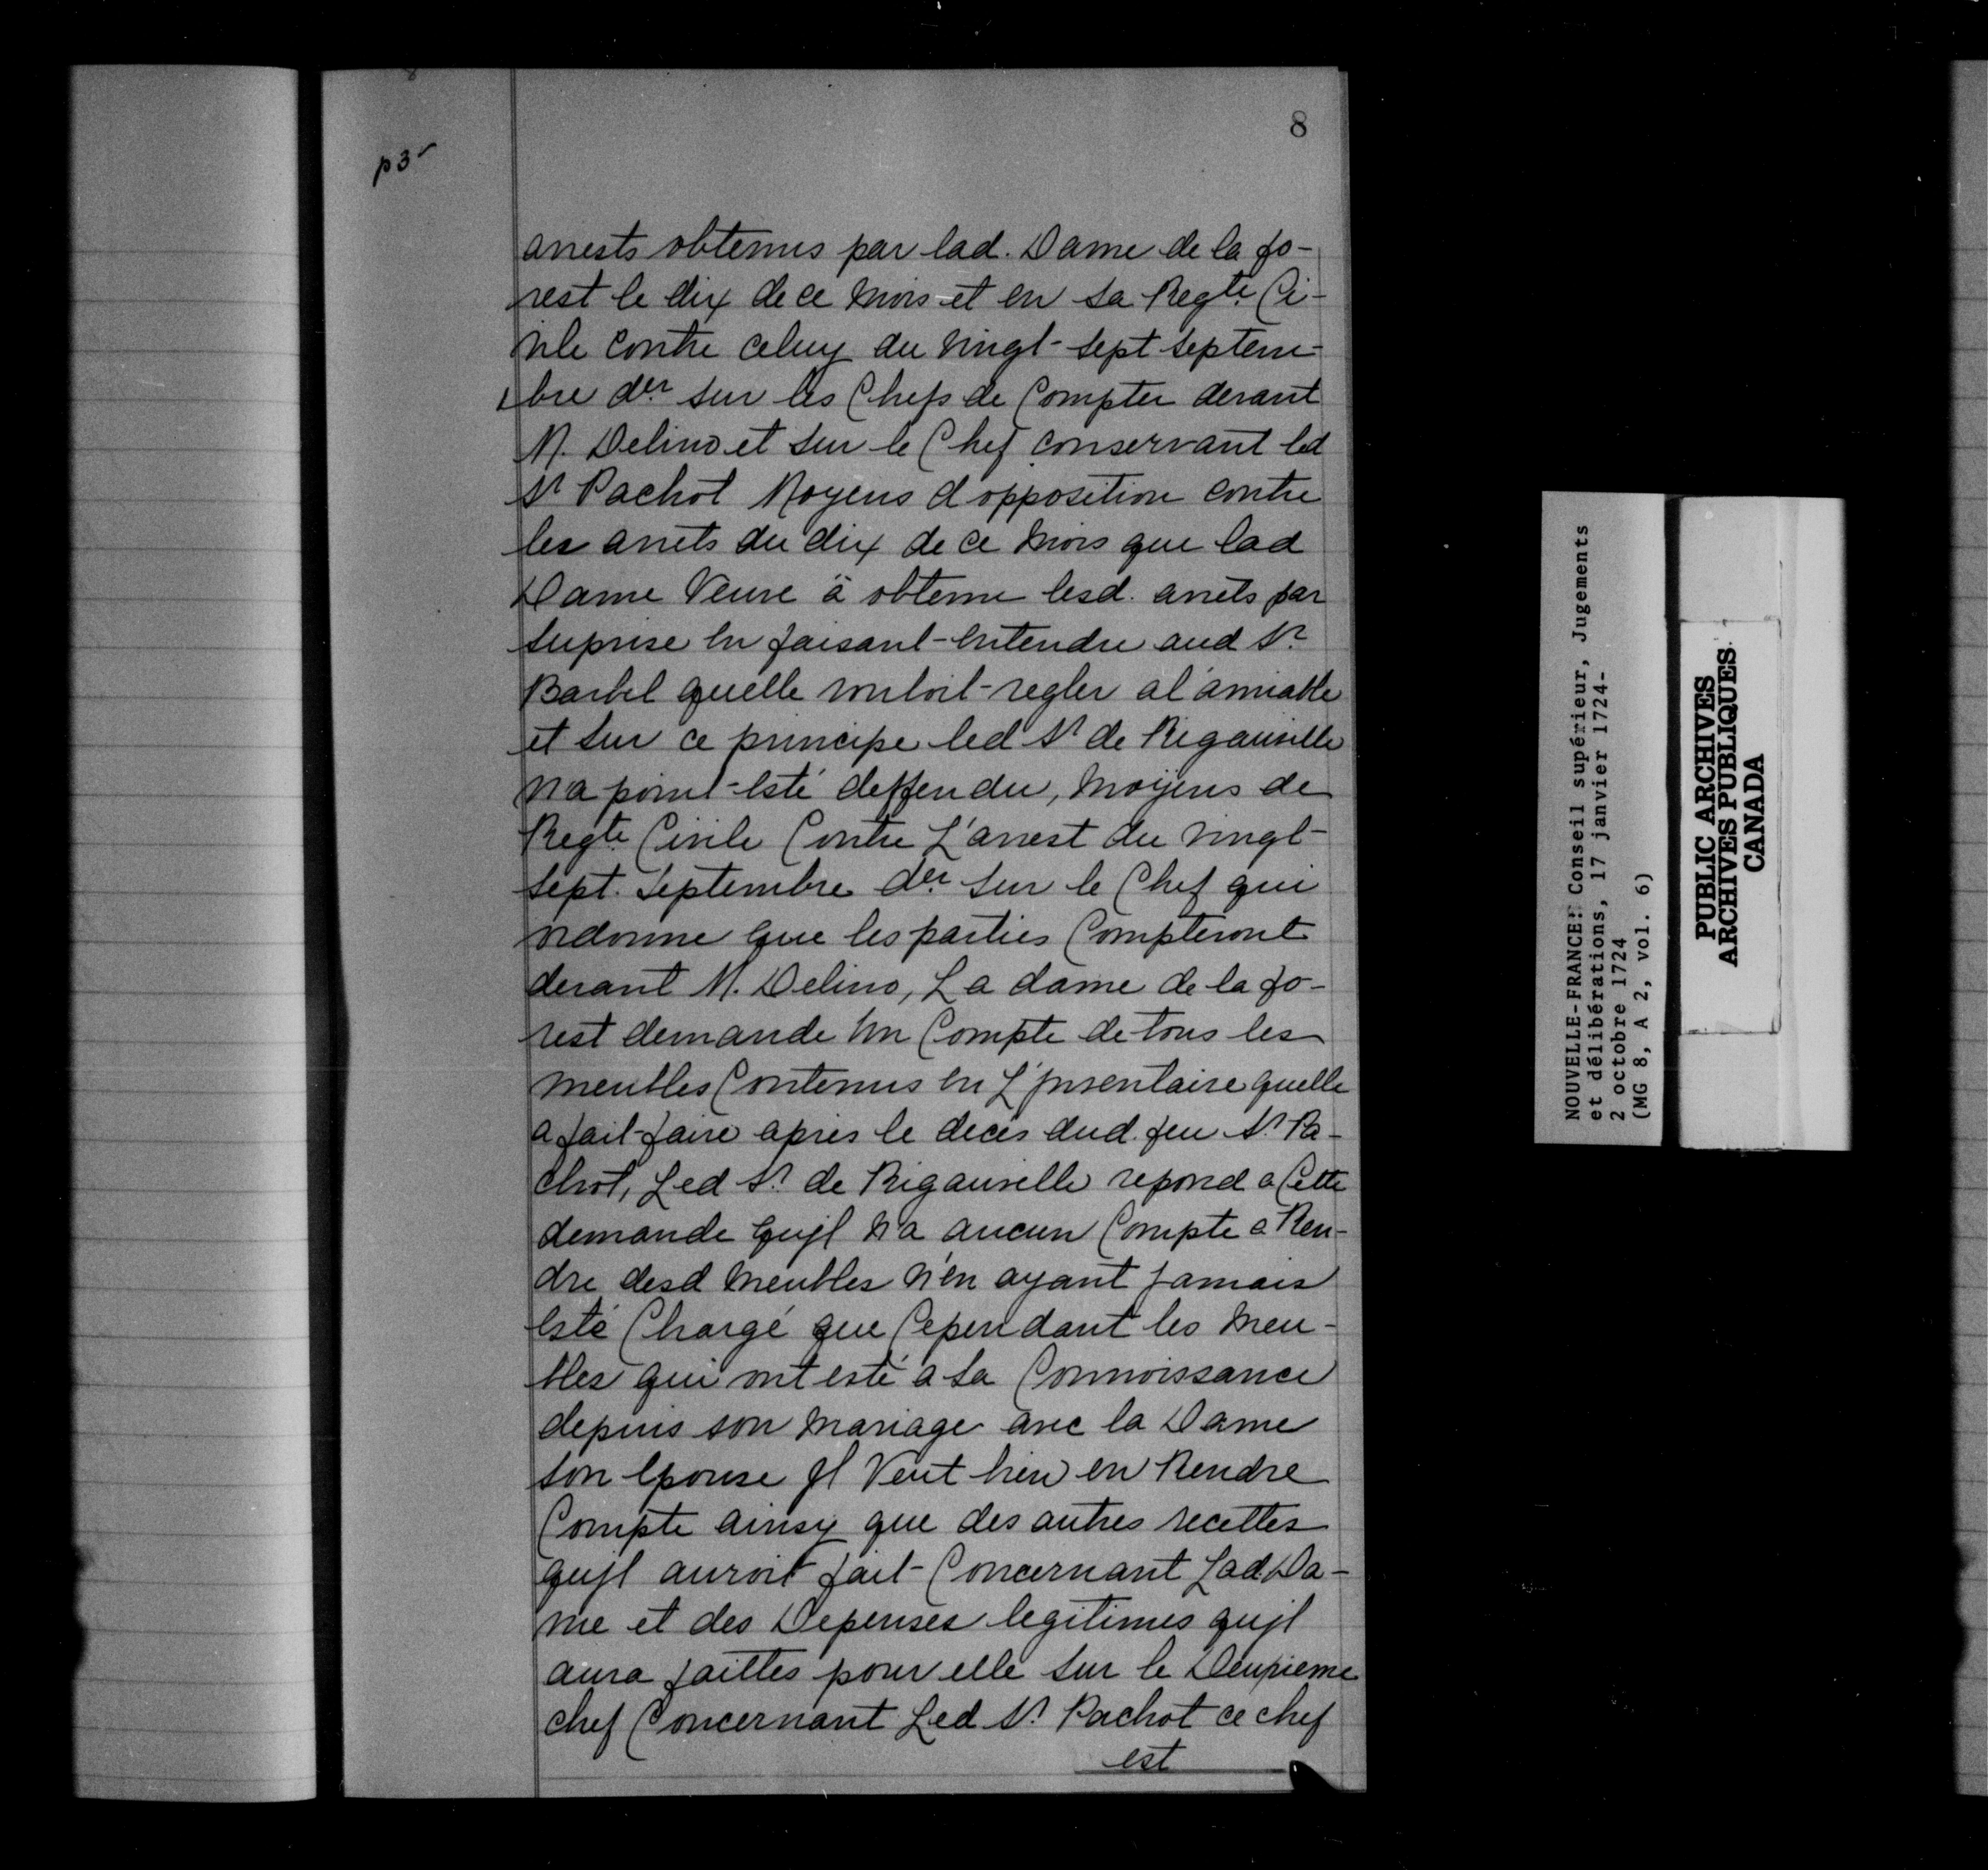 8
p3-
arrests obtenus par lad. Dame de la fo-
rest le dix de ce mois et en sa Regte Ci-
vile contre celuy du vingt-sept septem-
bre der sur les Chefs de Compter devant
M. Delino et sur le Chef conservant led
Sr Pachot Moyens d'opposition contre
les arrets du dix de ce mois que lad
Dame Veuve à obtenu lesd. arrêts par
suprise en faisant-entendre aud Sr
Barbel quelle vouloit-regler al'amiable
et sur ce principe led Sr de Rigauville
na point-esté deffendu, moyens de
Regte Civile Contre L'arrest du vingt-
sept. Septembre der sur le Chef qui
ordonne que les parties Compteront
devant M. Delino, La dame de la fo-
rest demande un Compte de tous les
meubles Contenus en L'Jnventaire quelle
a fait-faire après le decès dud. feu Sr Pa-
chot, Led Sr de Rigauville repond a Cette
demande qujl n'a aucun Compte a Ren-
dre desd meubles n'en ayant Jamais
esté Chargé que Cependant les meu-
bles qui ont esté a sa Connoissance
depuis son mariage avec la Dame
son epouse Jl Veut bien en Rendre
Compte ainsy que des autres recettes
qujl auroit fait-Concernant Lad. Da-
me et des Depenses legitimes qujl
aura faittes pour elle sur le Deuxieme
chef Concernant Led Sr Pachot ce chef
est
NOUVELLE-FRANCE: Conseil supérieur, Jugements
et délibérations, 17 janvier 1724-
2 octobre 1724
(MG 8, A 2, vol. 6)
PUBLIC ARCHIVES
ARCHIVES PUBLIQUES
CANADA